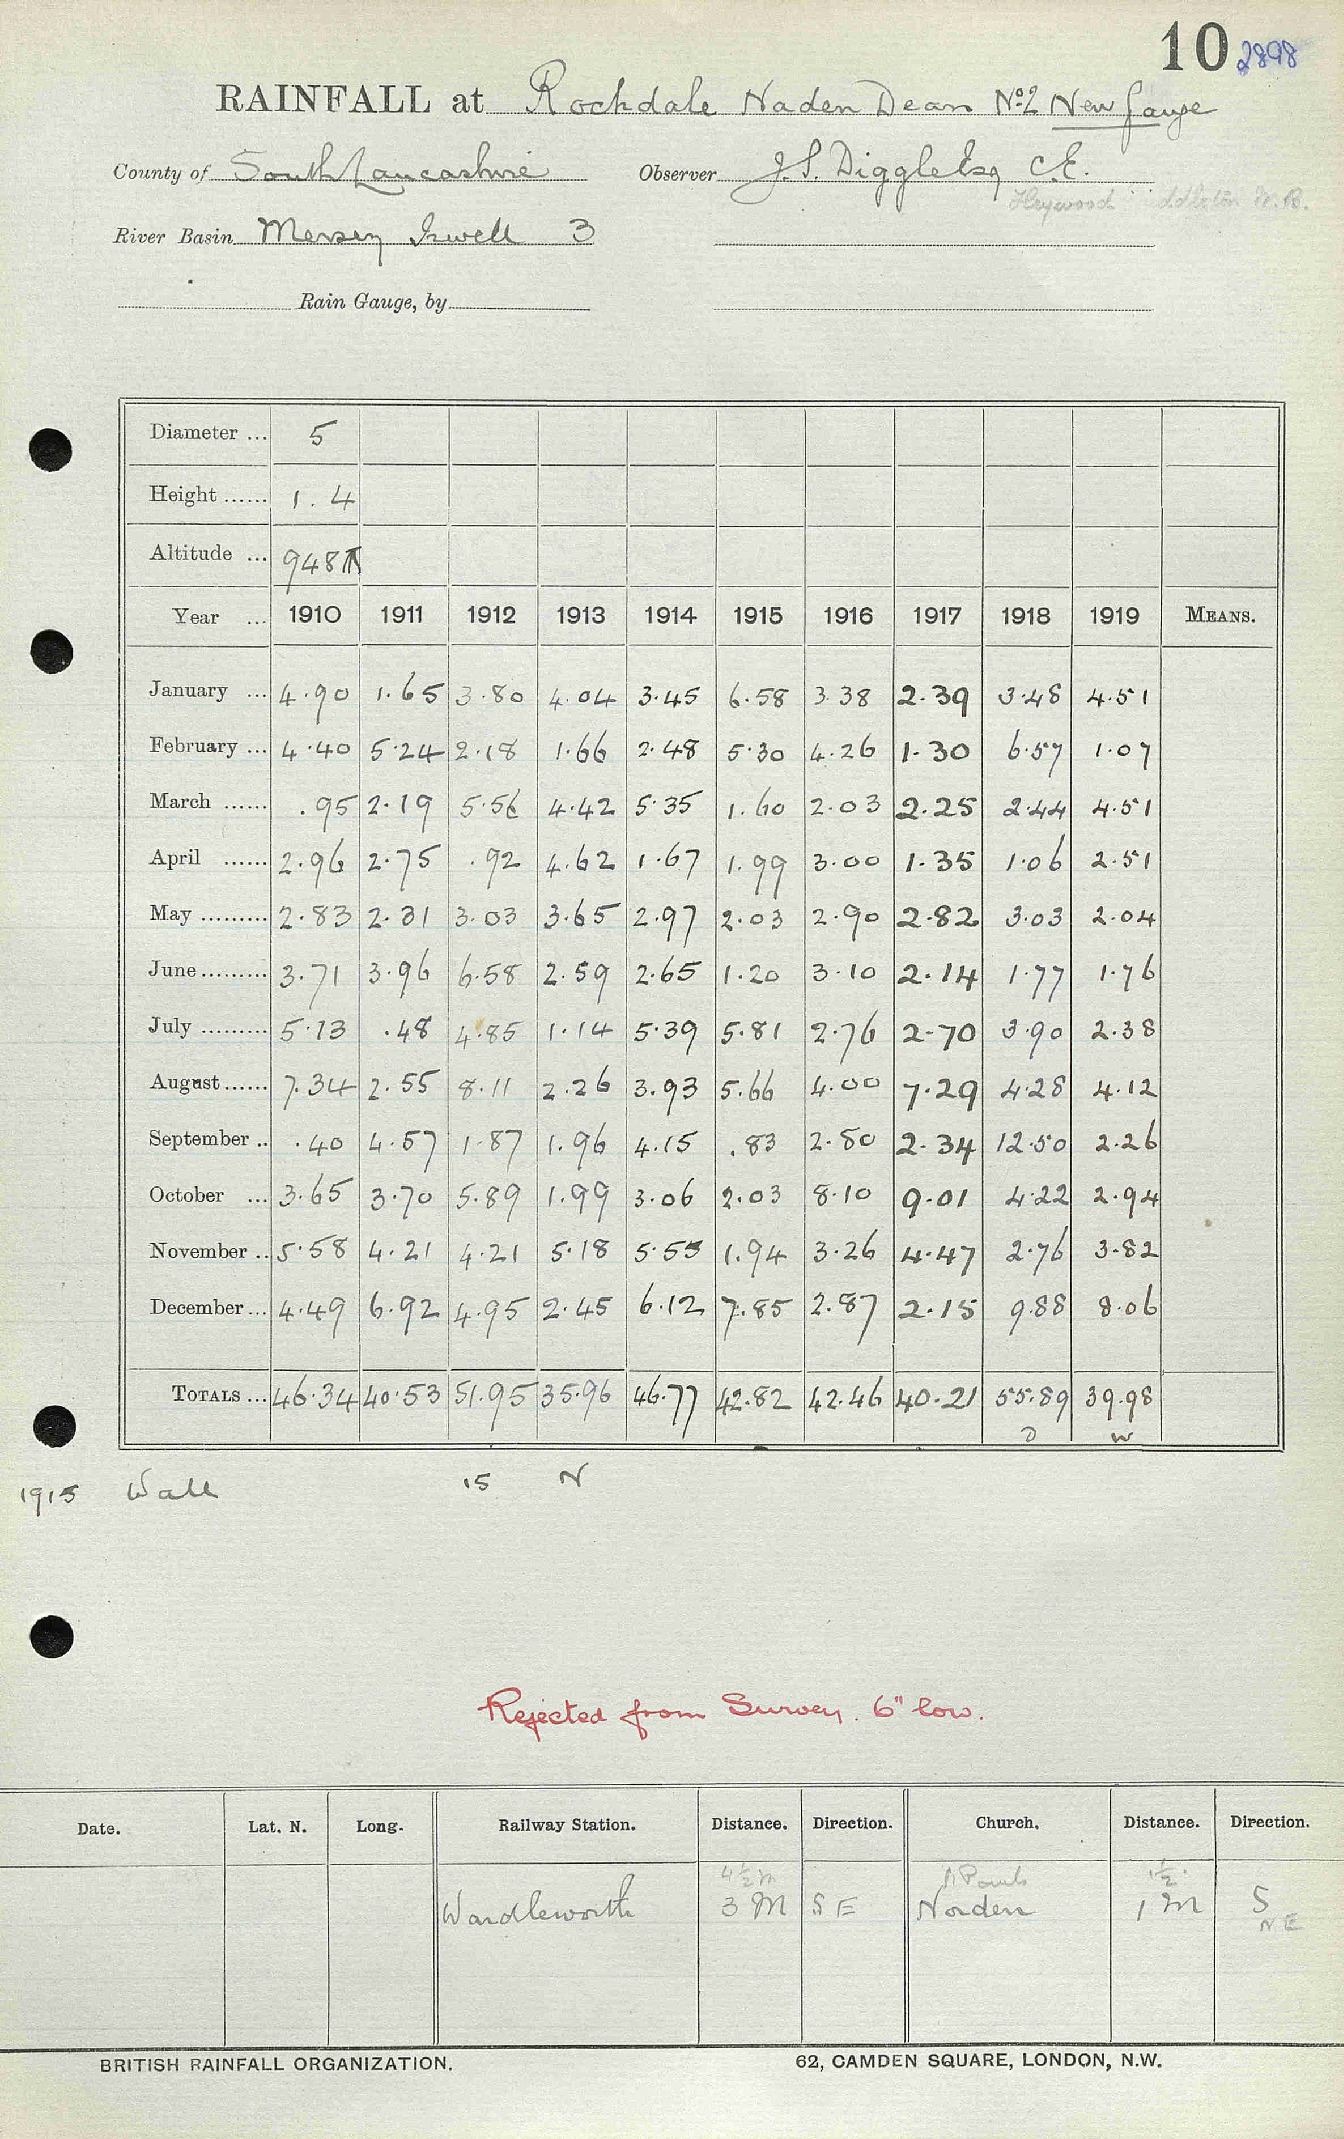 10 2898
RAINFALL at Rochdale Naden Dean No 2 New Gauge
County of South Lancashire Observer J.S. Diggle Esq C.E.
Heywood M.B.
River Basin Mersey Irwell 3
Rain Gauge, by
Diameter ... 5
Height ...... 1.4
Altitude ... 948
Year ... 1910 1911 1912 1913 1914 1915 1916 1917 1918 1919 MEANS.
January ... 4.90 1.65 3.80 4.04 3.45 6.58 3.38 2.39 3.48 4.51
February ... 4.40 5.24 2.18 1.66 2.48 5.30 4.26 1.30 6.57 1.07
March ...... .95 2.19 5.56 4.42 5.35 1.60 2.03 2.25 2.44 4.51
April ...... 2.96 2.75 .92 4.62 1.67 1.99 3.00 1.35 1.06 2.51
May ......... 2.83 2.31 3.03 3.65 2.97 2.03 2.90 2.82 3.03 2.04
June ......... 3.71 3.96 6.58 2.59 2.65 1.20 3.10 2.14 1.77 1.76
July ......... 5.13 .48 4.85 1.14 5.39 5.81 2.76 2.70 3.90 2.38
August ...... 7.34 2.55 8.11 2.26 3.93 5.66 4.00 7.29 4.28 4.12
September .. .40 4.57 1.87 1.96 4.15 .83 2.80 2.34 12.50 2.26
October ... 3.65 3.70 5.89 1.99 3.06 2.03 8.10 9.01 4.22 2.94
November .. 5.58 4.21 4.21 5.18 5.55 1.94 3.26 4.47 2.76 3.82
December ... 4.49 6.92 4.95 2.45 6.12 7.85 2.87 2.15 9.88 8.06
TOTALS ... 46.34 40.53 51.95 35.96 46.77 42.82 42.46 40.21 55.89 39.98
1915 Wall 15 N
Rejected from Survey. 6" low.
Date. Lat. N. Long. Railway Station. Distance. Direction. Church. Distance. Direction.
4½ m 1½
Wardleworth 3 M S E Norden 1 M S
N E
BRITISH RAINFALL ORGANIZATION. 62, CAMDEN SQUARE, LONDON, N.W.